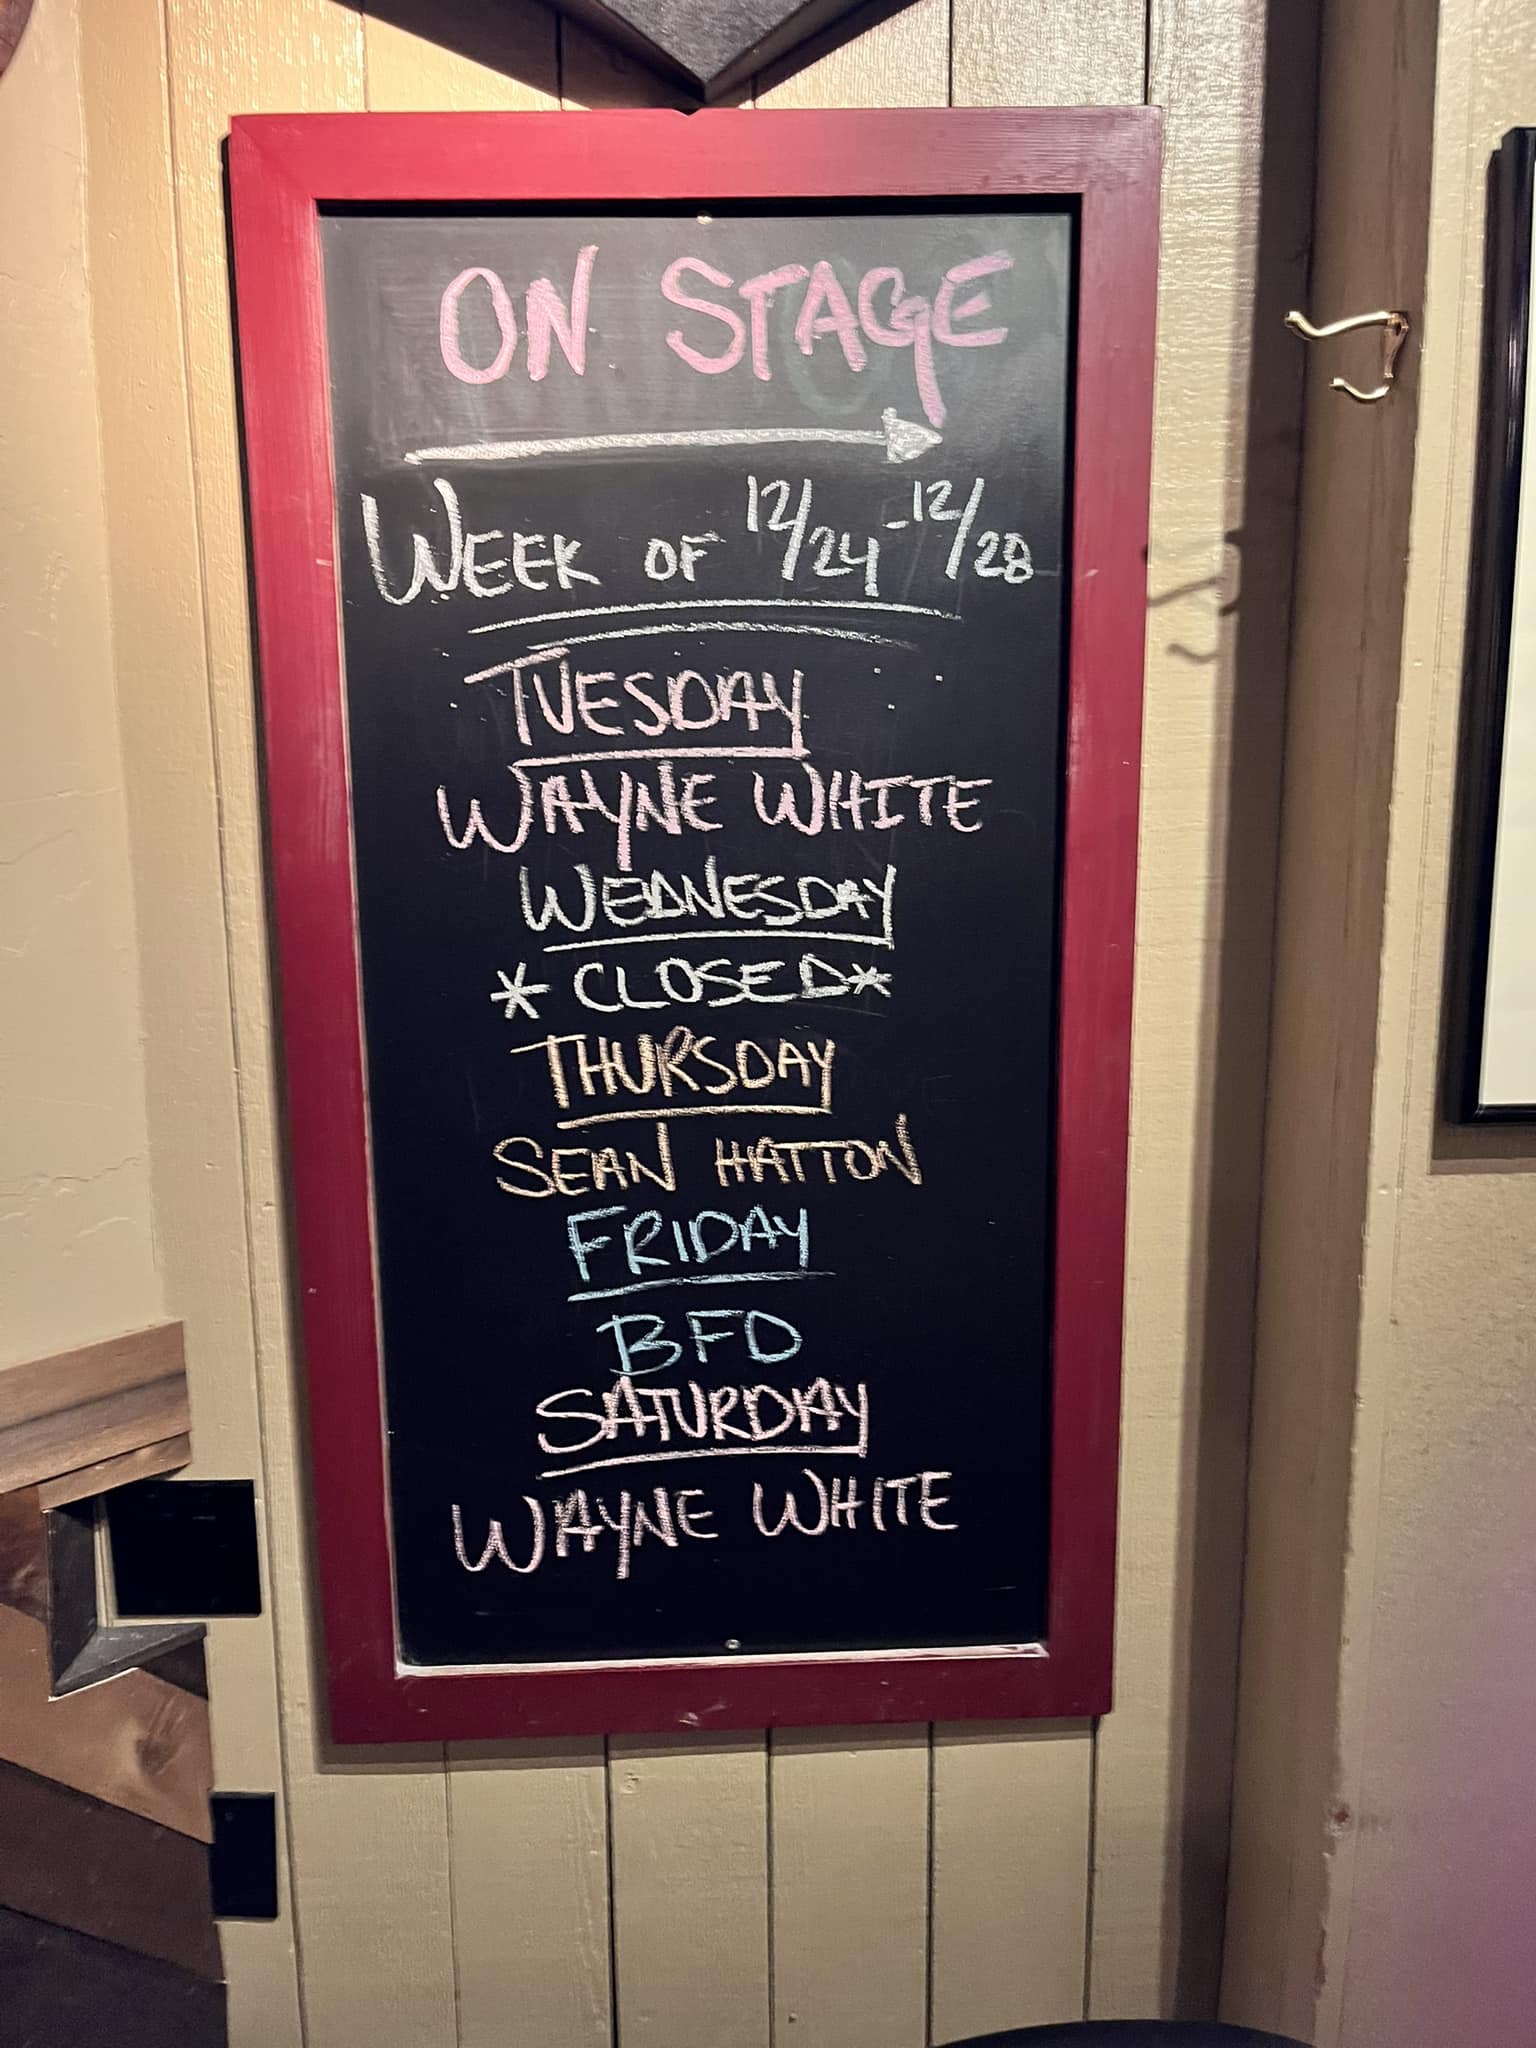 ON STAGE
WEEK OF 12/24-12/28
TUESDAY
WAYNE WHITE
WEDNESDAY
* CLOSED*
THURSDAY
SEAN HATTON
FRIDAY
BFD
SATURDAY
WAYNE WHITE